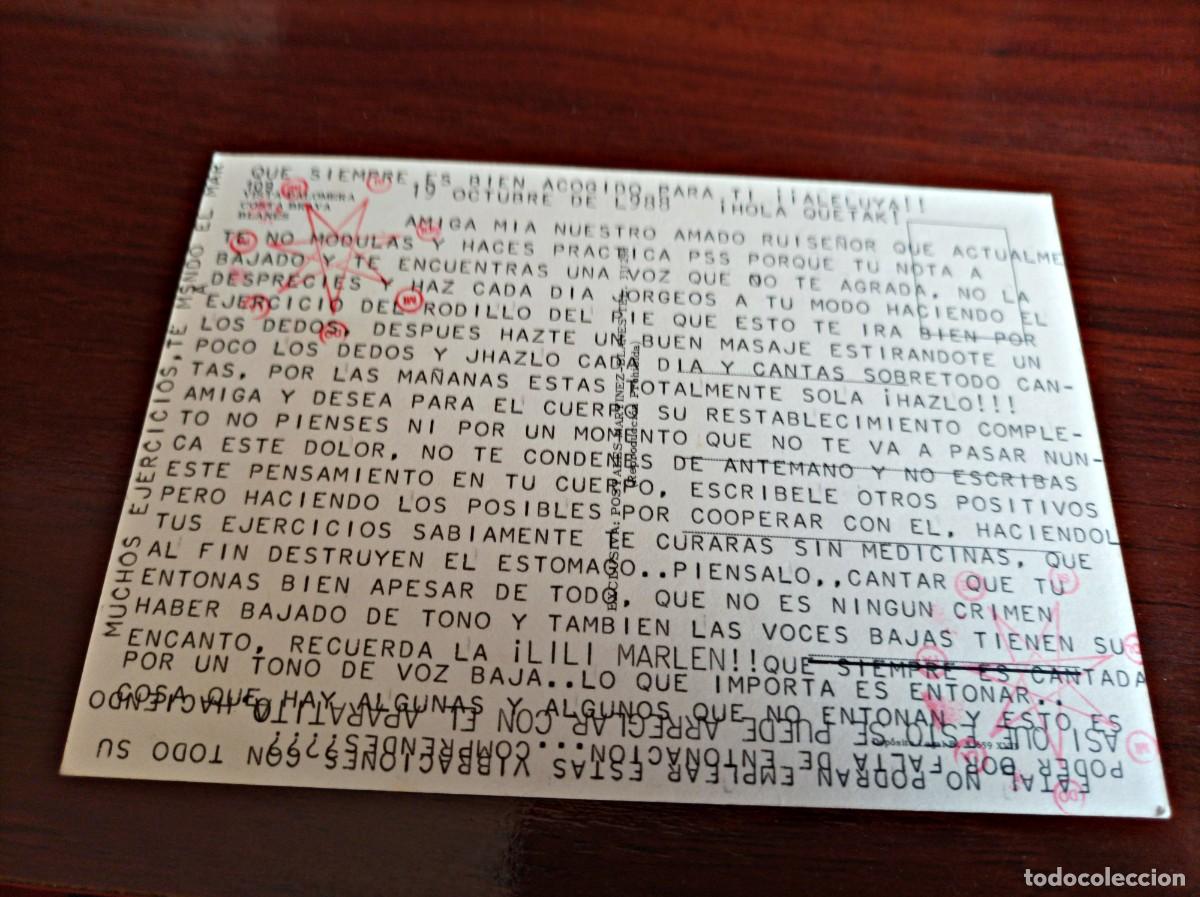 QUE SIEMPRE ES BIEN ACOGIDO PARA TI ¡¡ALELUYA!!
109
VISTA PALOMERA
COSTA BRAVA
BLANES
19 OCTUBRE DE L988 ¡HOLA QUETAK!
AMIGA MIA NUESTRO AMADO RUISEÑOR QUE ACTUALME
TE NO MODULAS Y HACES PRACTICA PSS PORQUE TU NOTA A
BAJADO Y TE ENCUENTRAS UNA VOZ QUE NO TE AGRADA, NO LA
DESPRECIES Y HAZ CADA DIA JORGEOS A TU MODO HACIENDO EL
EJERCICIO DEL RODILLO DEL PIE QUE ESTO TE IRA BIEN POR
LOS DEDOS, DESPUES HAZTE UN BUEN MASAJE ESTIRANDOTE UN
POCO LOS DEDOS Y JHAZLO CADA DIA Y CANTAS SOBRETODO CAN-
TAS, POR LAS MAÑANAS ESTAS TOTALMENTE SOLA ¡HAZLO!!!
AMIGA Y DESEA PARA EL CUERPO SU RESTABLECIMIENTO COMPLE-
TO NO PIENSES NI POR UN MOMENTO QUE NO TE VA A PASAR NUN-
CA ESTE DOLOR, NO TE CONDENES DE ANTEMANO Y NO ESCRIBAS
ESTE PENSAMIENTO EN TU CUERPO, ESCRIBELE OTROS POSITIVOS
PERO HACIENDO LOS POSIBLES POR COOPERAR CON EL, HACIENDOL
TUS EJERCICIOS SABIAMENTE TE CURARAS SIN MEDICINAS, QUE
AL FIN DESTRUYEN EL ESTOMAGO..PIENSALO,,CANTAR QUE TU
ENTONAS BIEN APESAR DE TODO, QUE NO ES NINGUN CRIMEN
HABER BAJADO DE TONO Y TAMBIEN LAS VOCES BAJAS TIENEN SU
ENCANTO, RECUERDA LA ¡LILI MARLEN!!QUE SIEMPRE ES CANTADA
POR UN TONO DE VOZ BAJA..LO QUE IMPORTA ES ENTONAR..
COSA QUE HAY ALGUNAS Y ALGUNOS QUE NO ENTONAN Y ESTO ES
FATAL NO PODRAN EMPLEAR ESTAS VIBRACIONES?GON TODO SU
PODER POR FALTA DE ENTONACION...COMPRENDES????
ASI QUE ESTO SE PUEDE ARREGLAR CON EL APARATITO HACIENDO
MUCHOS EJERCICIOS,TE MANDO EL MAR
EXCLUSIVA: POSTALES MARTINEZ-BLANES-TEL.
(Reproducción Prohibida)
todocoleccion